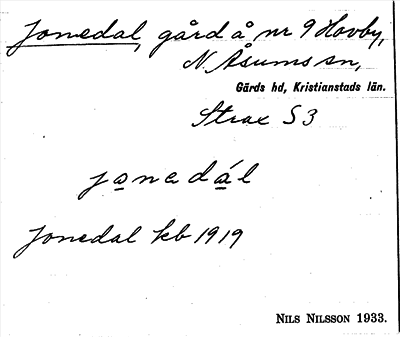 Jonedal, gård å nr 9 Hovby,
N. Åsums sn,
Gärds hd, Kristianstads län.
Strax S 3
jo̲neda̲´l
Jonedal kb 1919
NILS NILSSON 1933.